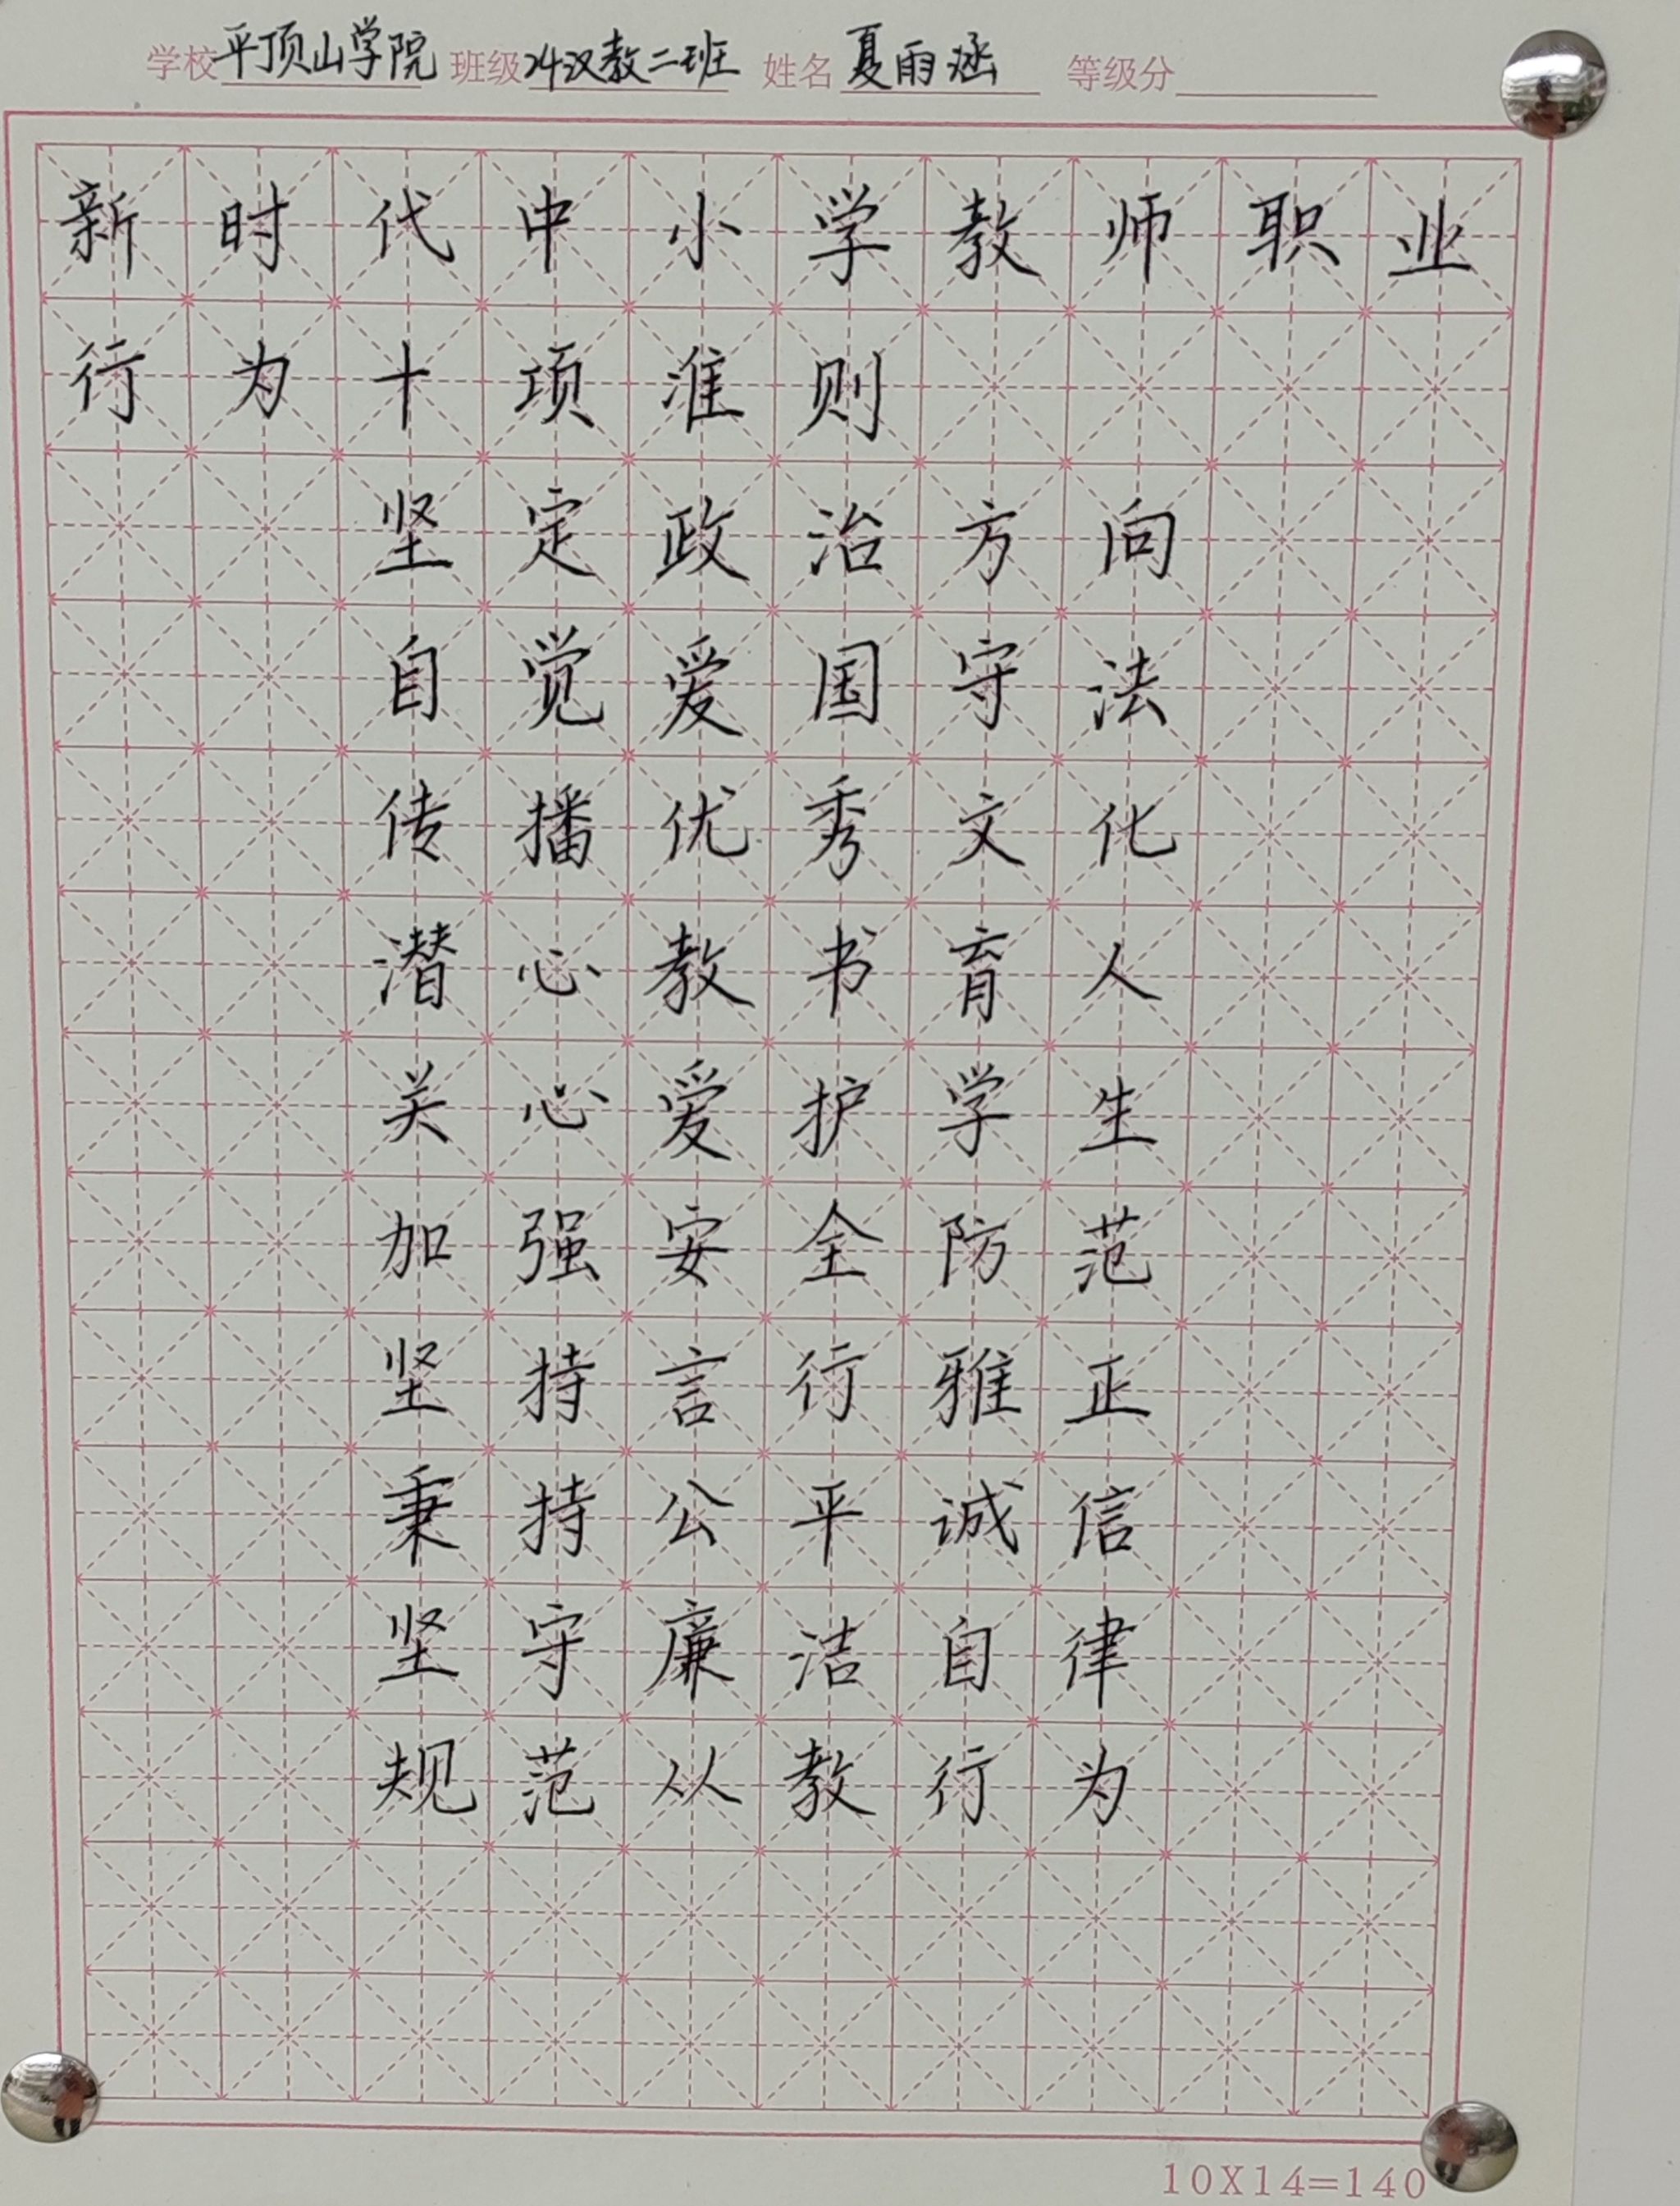 学校 平顶山学院 班级 24汉教二班 姓名 夏雨涵 等级分
新时代中小学教师职业
行为十项准则
坚定政治方向
自觉爱国守法
传播优秀文化
潜心教书育人
关心爱护学生
加强安全防范
坚持言行雅正
秉持公平诚信
坚守廉洁自律
规范从教行为
10X14=140